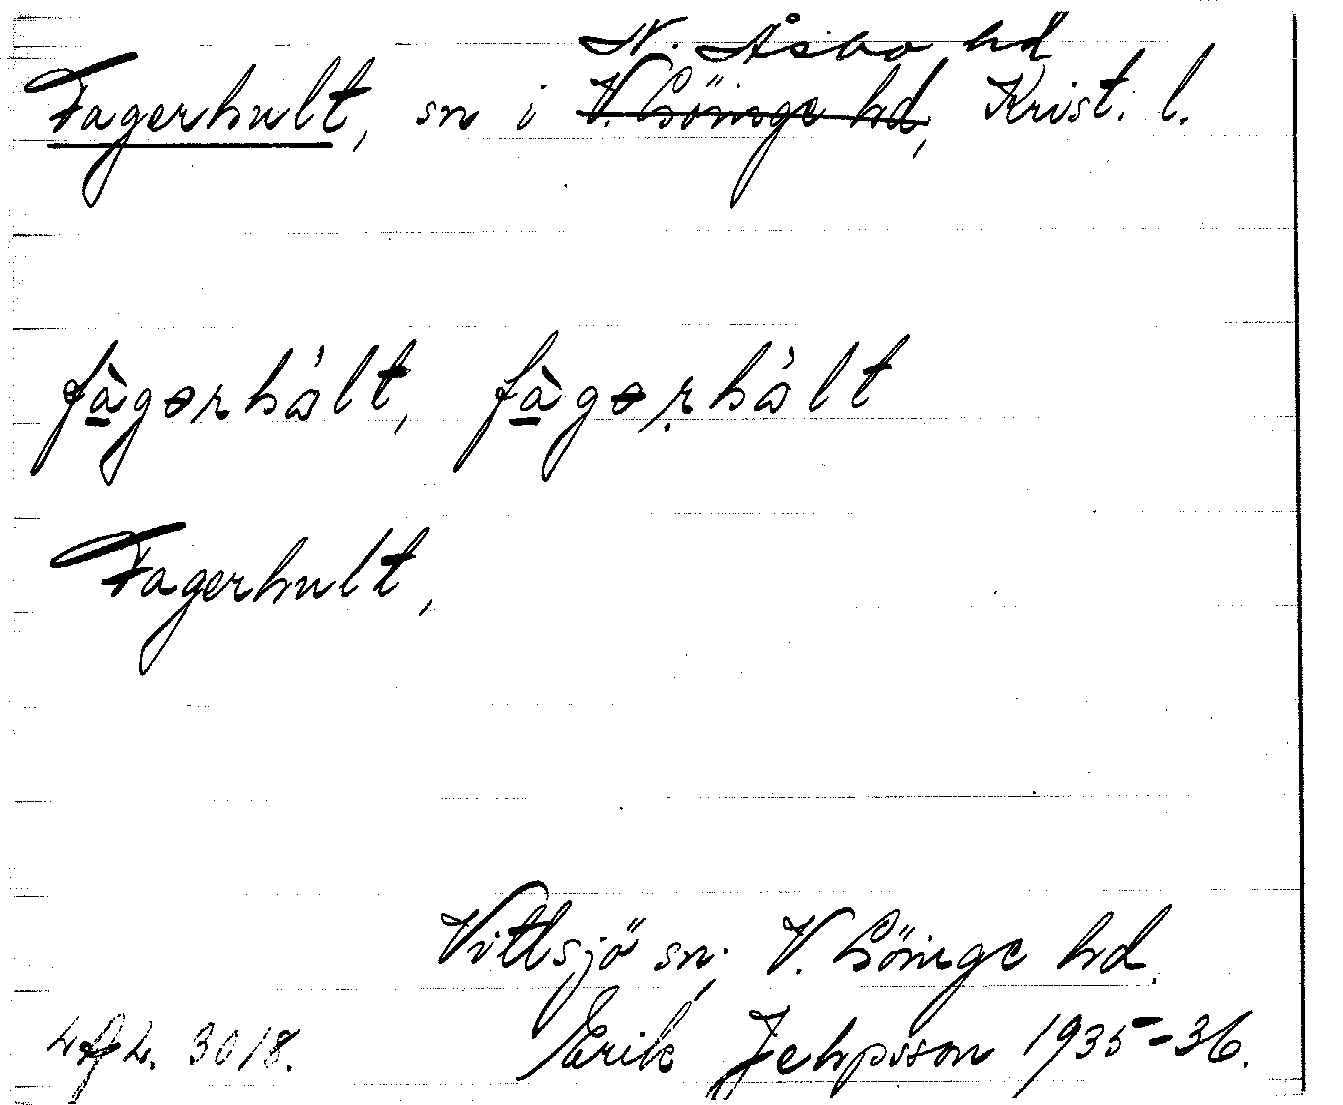 N. Åsbo hd
Fagerhult, sn i V. Göinge hd, Krist. l.
fàgərhål̀t, fàgəṛhål̀t
Fagerhult,
Vittsjö sn, V. Göinge hd.
3018. Erik Jeppsson 1935-36.